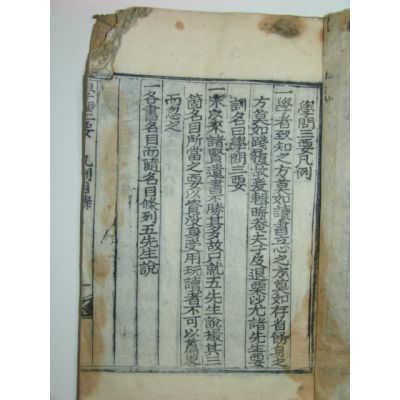 學問三要凡例
一學者致知之方莫如讀書立心之方莫如存省飭身之
方莫如踐履故爰輯晦庵夫子及退栗沙尤諸先生要
訓名曰學問三要
一宋以來諸賢遺書不勝其多故只就五先生說撮其三
箇名目所當之要以資沒身受用玩讀者不可以簡畧
而忽之
一各書名目而隨名目條列五先生說
學問三要 凡例目錄